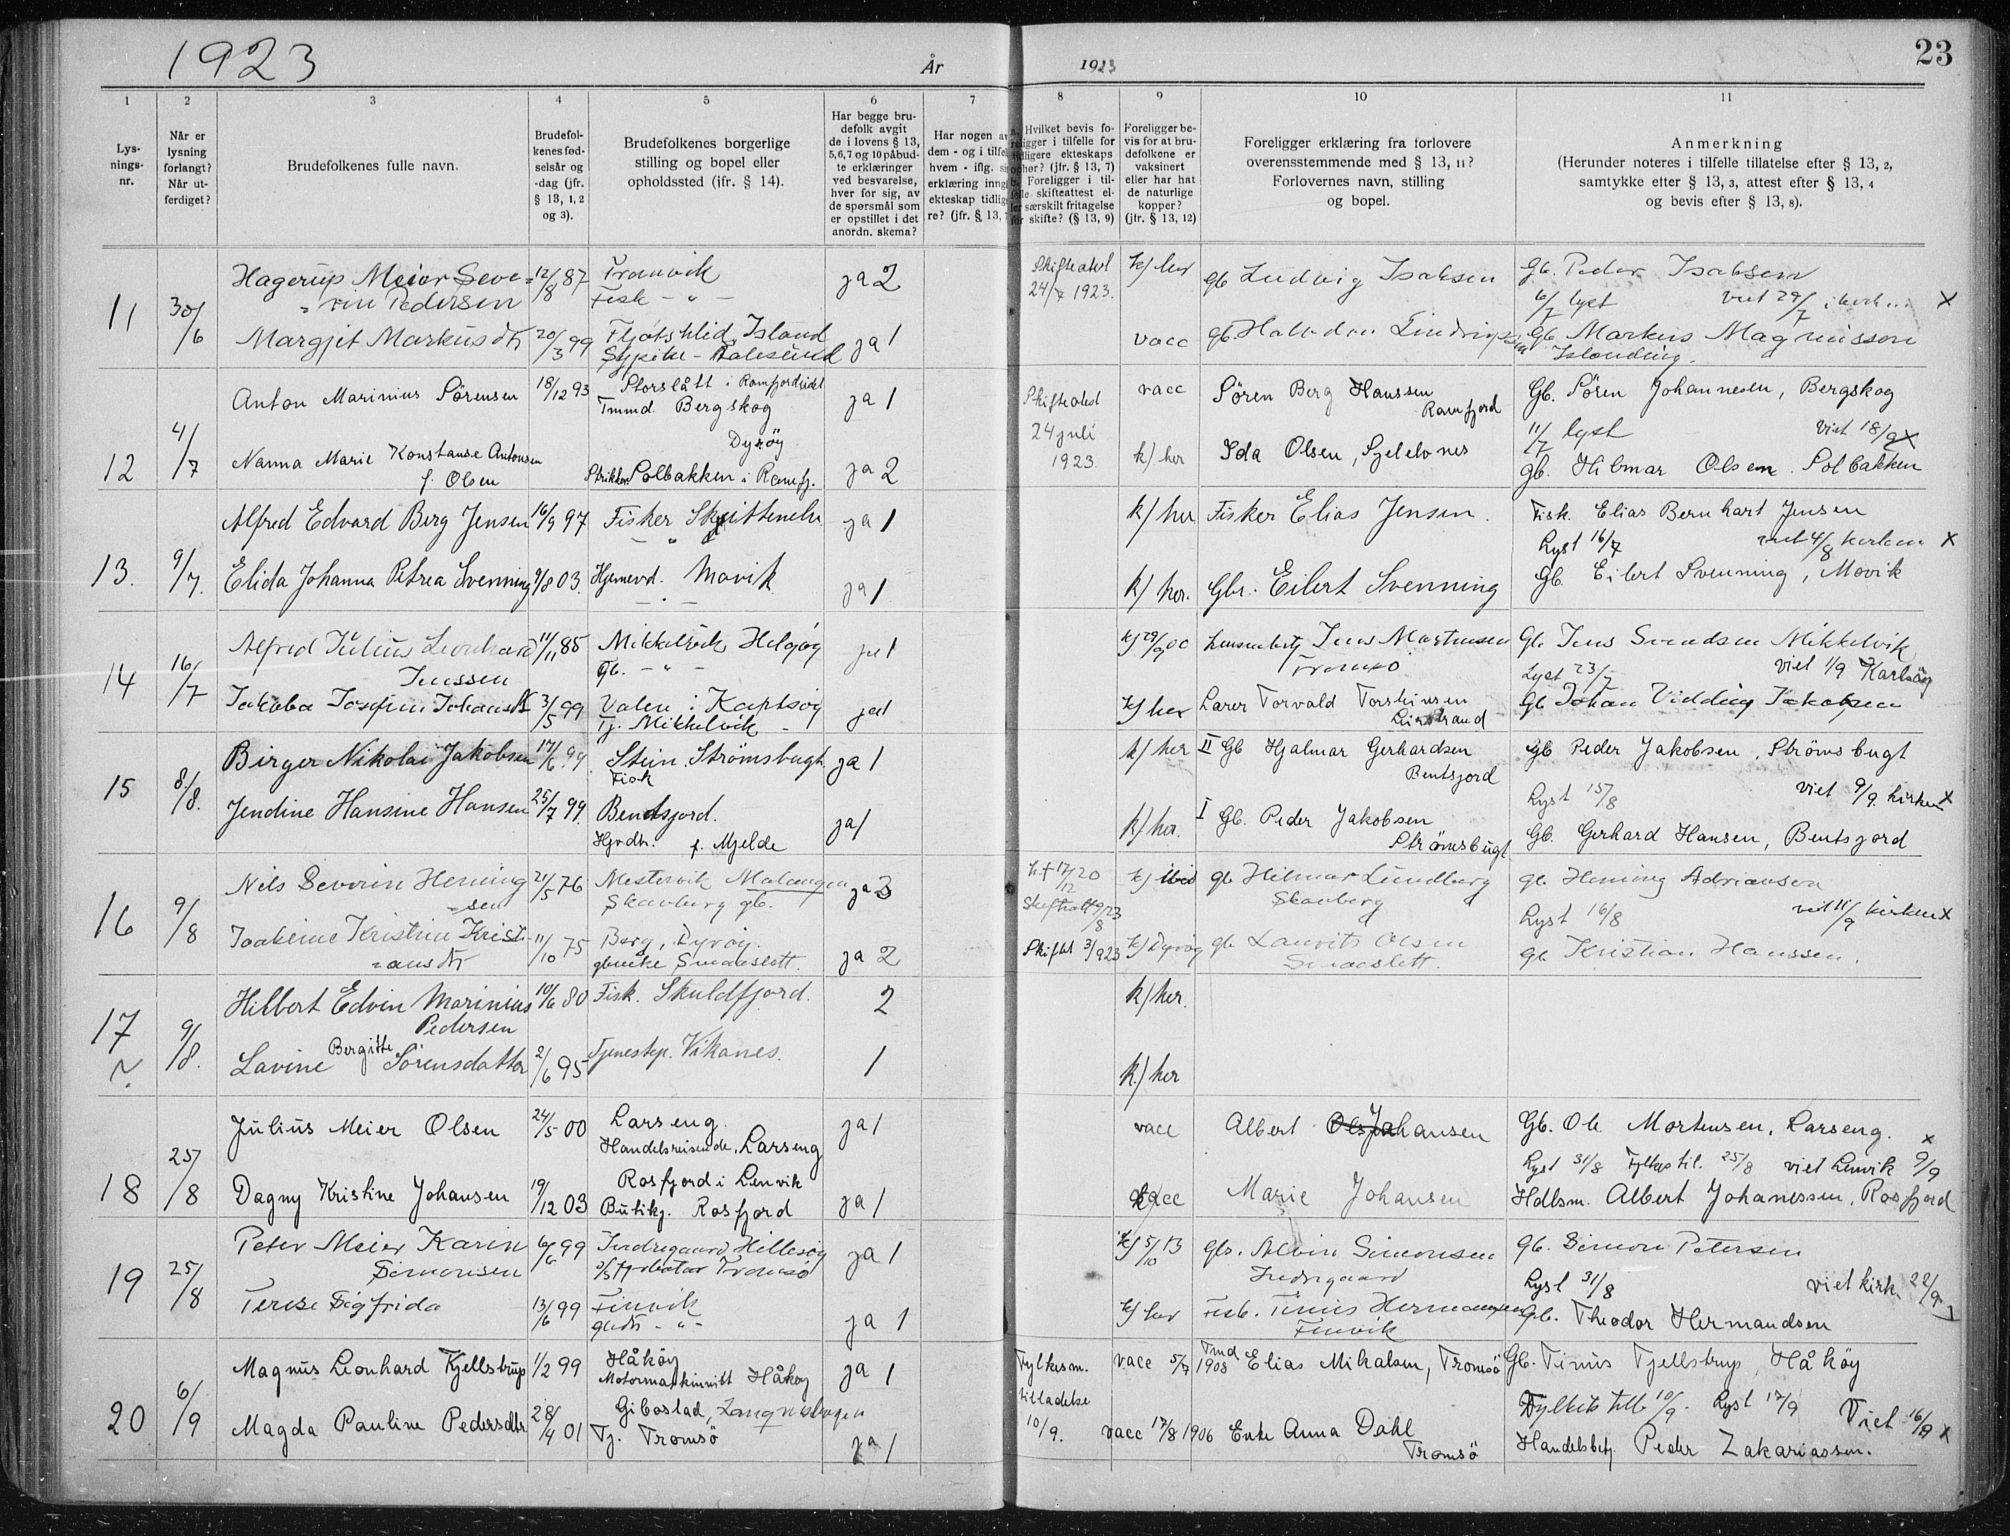 1923
År
1923
23
1
2
3
4
5
6
7
8
9
10
11
Lys-
nings-
nr.
Når er
lysning
forlangt?
Når ut-
ferdiget?
Brudefolkenes fulle navn.
Brudefol-
kenes fød-
selsår og
-dag (jfr.
§ 13, 1, 2
og 3).
Brudefolkenes borgerlige
stilling og bopel eller
opholdssted (ifr. § 14).
Har begge bru-
defolk avgit
de i lovens § 13,
5, 6, 7 og 10 påbud-
te erklæringer
ved besvarelse,
hver for sig, av
de spørsmål som
er opstillet i det
anordn. skema?
Har nogen
dem - og i
hvem - iflg.
erklæring
ekteskap
re? (jfr. § 13,
Hvilket bevis fo-
religger i tilfelle for
tidligere ekteskaps
ophør? (jfr. § 13, 7)
Foreligger i til-
felle skifteattest el-
ler særskilt fritagelse
for skifte? (§ 13, 9)
Foreligger be-
vis for at bru-
defolkene er
vaksinert
eller har hat
de naturlige
kopper?
(jfr. § 13, 12)
Foreligger erklæring fra forlovere
overensstemmende med § 13, 11?
Forlovernes navn, stilling
og bopel.
Anmerkning
(Herunder noteres i tilfelle tillatelse efter § 13, 2,
samtykke etter § 13, 3, attest efter § 13, 4
og bevis efter § 13, 8).
11
30/6
Hagerup Meier Seve-
rin Pedersen
12/8 87
Fisk - " -
ja 2
Skifteatest
24/7 1923.
k/ her
gb Ludvig Isaksen
Gb. Peder Isaksen
6/7 lyst viet 29/7 X
Margjet Markusdtr
20/3 99
Island
Aalesund
ja 1
vacc
Gb. Markus Magnusson
Islending.
12
4/7
Anton Marinius Sørensen
18/12 93
Storslått i Ramfjordeidet
Tmmd. Bergskog
ja 1
Skifteatest
24 juli
1923.
vacc
Søren Berg Hanssen
Ramfjord
Gb. Sören Johannesen, Bergskog
11/7 lyst viet 18/9 X
Nanna Marie Konstanse Antonsen
f. Olsen
Dyrøy
Solbakken i Ramfj.
ja 2
k/ her
Ida Olsen,
gb. Hilmar Olsen Solbakken
13.
9/7.
Alfred Edvard Berg Jensen
16/9 97
Fisker Skittenelv
ja 1
k/ her
Fisker Elias Jensen.
Fisk. Elias Bernhart Jensen
Lyst 16/7 viet 4/8 kirken X
Elida Johanna Petrea Svenning
9/8 03.
Hjemevd. Movik
ja 1
k/ her.
Gbr. Eilert Svenning
Gb. Eilert Svenning, Movik
14
16/7
Alfred Julius Leonhard
Jenssen
11/11 85
Mikkelvik Helgøy
Gb. - " -
ja 1
k/ 29/9 00
Jens Mortensen
Tromsö
Gb Jens Svendsen Mikkelvik
Lyst 23/7 viet 1/9 Karlsöy
Jakoba Josefine Johansdtr
3/5 99
Valen i Karlsøy
Tj. Mikkelvik
ja 1
k/ her
Lærer Torvald Torstensen
Gb Johan Jakobsen
15
8/8.
Birger Nikolai Jakobsen
17/6 99
Stein Strömsbugt.
Fisk
ja 1
k/ her
II Gb Hjalmar Gerhardsen
Bentsjord
Gb Peder Jakobsen, Strömsbugt
Lyst 15/8 viet 9/9. kirken X
Jendine Hansine Hansen
25/7 99.
Bentsjord.
Hjvdtr. f. Mjelde
ja 1
k/ her.
I Gb. Peder Jakobsen
Strømsbugt
Gb. Gerhard Hansen, Bentsjord
16
9/8
Nils Severin Hening
sen
21/5 76
Mestervik Malangen
Skavberg gb.
ja 3
17/12 20
19/8 23
k/ ibid
gb Hilmar Lundberg
Skavberg
gb. Hening Adriansen
Lyst 16/8 viet 11/9 kirken X
Jakobine Kristine Kristi-
ansdtr
11/10 75
Berg, Dyrøy.
gbenke
ja 2
Skiftet 3/9 23
k/ Dyrøy
gb Lauvits Olsen
gb Kristian Hanssen.
17
9/8.
Hilbert Edvin Marinius
Pedersen
10/6 80
Fisk. Skulsfjord.
2
k/ her.
Lavine Bergitte Sörensdatter
2/6 95
Tjenestep. Vikanes.
1
k/ her
18
25/8
Julius Meier Olsen
24/5 00
Larseng.
Handelsreisende, Larseng
ja 1
vacc
Albert Johansen
Gb. Ole Mortensen, Larseng. X
Lyst 31/8 Fylkes til. 25/8 viet Lenvik 9/9
Dagny Kristine Johansen
19/12 03
Rosfjord i Lenvik
Butikj. Rosfjord
ja 1
vacc
Marie Johansen
Hdlsm. Albert Johanessen, Rosfjord
19
25/8
Peter Meier Karin
Simonsen
6/6 99
Indregaard Hillesøy
Tromsø
ja 1
k/ 5/10 13
gb. Alvin Simonsen
Indregaard
gb. Simon Petersen
Lyst 31/8 viet kirk. 22/9
Terese Sigfrida
13/6 99
Finvik
gbdtr - " -
ja 1
k/ her
Fisk. Tinus Hermansen
Finvik
Gb. Theodor Hermandsen
20
6/9
Magnus Leonhard Kjellstrup
1/2 99
Håköy
Motormaskinist Håkøy
ja 1
Fylkesm.
tilladelse
10/9.
vacc 5/7 1908
Tmd Elias Mikalsen, Tromsö
Gb. Tinus Tjellstrup, Håköy
Fylkes till. 10/9. Lyst 17/9 Viet 16/9 X
Magda Pauline Pedersdtr
28/4 01
Gibostad,
Tj. Tromsö
ja 1
vacc 17/8 1906
Enke Anna Dahl
Tromsö
Handelsbetj. Peder Zakariassen.